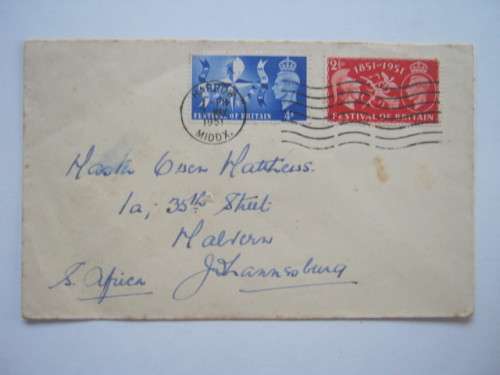 2½D 1851-1951
HARROW
1951
FESTIVAL OF BRITAIN 4D FESTIVAL OF BRITAIN
MIDDX.
Master Owen Matthews.
1a, 35th Street
Malvern
S. Africa Johannesburg